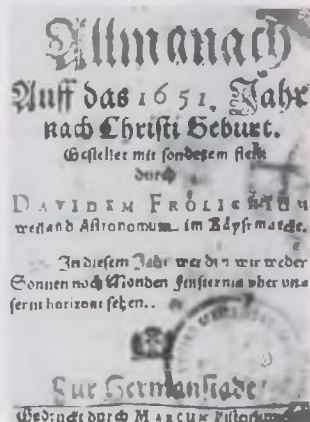 Allmanach
Auff das 1651. Jahr
nach Christi Geburt.
Gestellet mit sonderem fleiß
durch
DAVIDEM FRÖLICHIUM
weiland Astronomum im Käyßmarckt.
In diesem Jahr werden wir weder
Sonnen noch Monden finsternis vber vns
serm horizont sehen..
Zur Hermanstadt
Gedruckt durch MARCUM